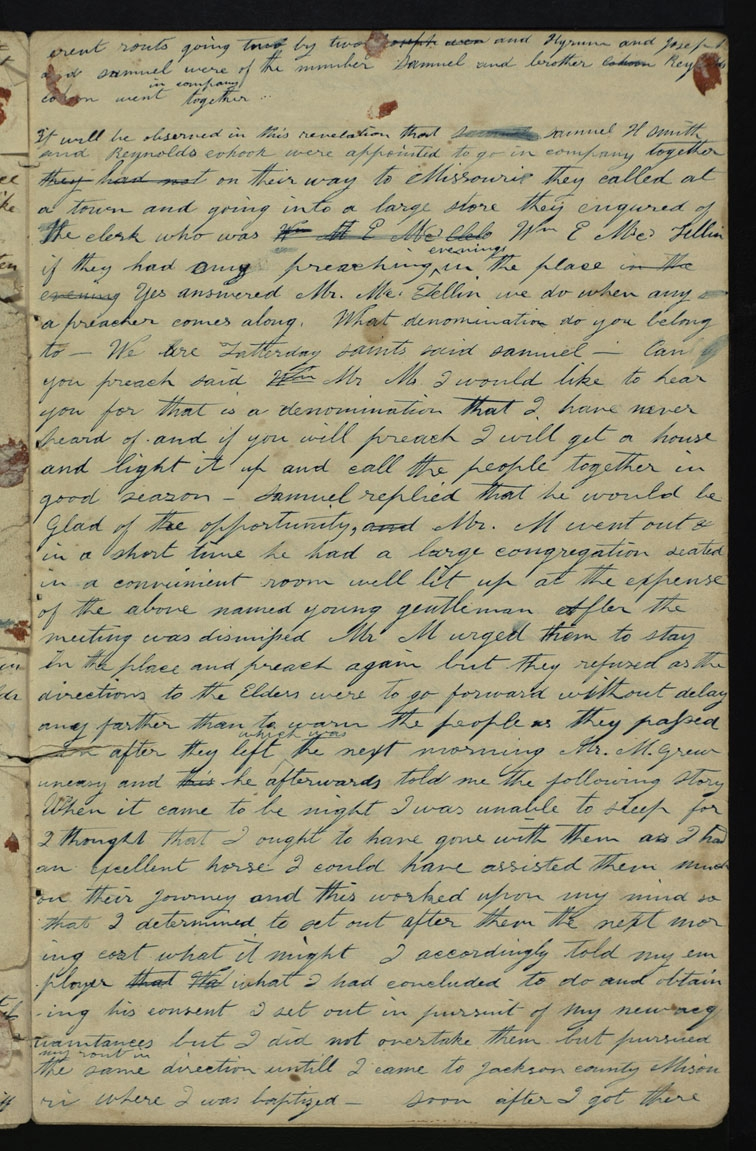 erent routs going two by two Joseph and Hyrum and Joseph
and samuel were of the number Samuel and brother cohoon Reynolds
in company
cohoon went together
It will be observed in this revelation that samuel H Smith
and Reynolds cohook were appointed to go in company together
they had not on their way to Missourie they called at
a town and going into a large store they enqured of
the clerk who was Wm E Mc Lellin
evenings
if they had any preaching in the place in the
evening Yes answered Mr. Mc. Lellin we do when any
a preacher comes along. What denomination do you belong
to — We are Latterday saints said samuel — Can
you preach said Wm Mr Mc I would like to hear
you for that is a denomination that I have never
heard of and if you will preach I will get a house
and light it up and call the people together in
good seazon — Samuel replied that he would be
Glad of the opportunity, and Mr. M went out &
in a short time he had a large congregation seated
in a conviinient room well lit up at the expense
of the above named young gentleman After the
meeting was dismissed Mr. M urged them to stay
in the place and preach again but they refused as the
directions to the Elders were to go forward without delay
any farther than to warn the people as they passed
which was
after they left the next morning Mr. M. Grew
uneasy and this he afterwards told me the following story
When it came to be night I was unable to sleep for
I thought that I ought to have gone with them as I had
an excellent horse I could have assisted them much
on their Journey and this worked upon my mind so
that I determined to set out after them the next mor
ing cost what it might I accordingly told my em
ployer that what I had concluded to do and obtain
-ing his consent I set out in pursuit of my new acq
uaintances but I did not overtake them but pursued
my rout in
the same direction untill I came to Jackson county Misou
ri where I was baptized — soon after I got there